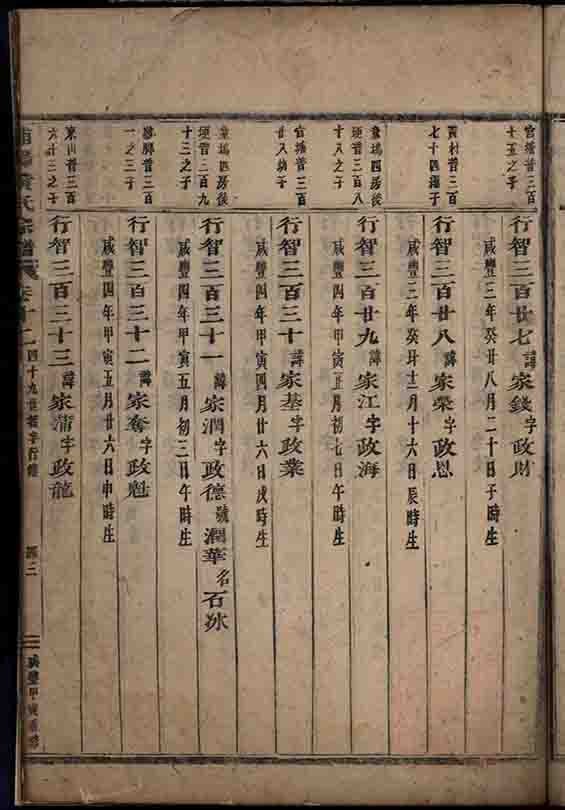 官塘普三百
十五之子
行智三百廿七諱家錢字政財
咸豐三年癸丑八月二十日子時生
黃村普三百
七十四繼子
行智三百廿八諱家榮字政恩
咸豐三年癸丑十二月十六日辰時生
童塢四房後
項普三百八
十八之子
行智三百廿九諱家江字政海
咸豐四年甲寅正月初七日午時生
官塘普三百
廿八幼子
行智三百三十諱家基字政業
咸豐四年甲寅四月廿六日戌時生
童塢四房後
項普三百九
十三之子
行智三百三十一諱家潤字政德號瀾華名石冰
咸豐四年甲寅五月初三日午時生
普三百
一之三子
行智三百三十二諱家奪字政魁
咸豐四年甲寅五月廿六日申時生
東山普三百
六十三之子
行智三百三十三諱家蒲字政龍
黃氏宗譜 卷十二 四十九世智字行傳
三
咸豐甲寅重修